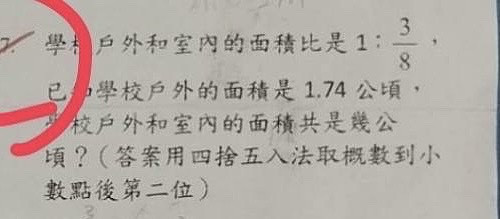 7. 學校戶外和室內的面積比是 1：3/8，
已知學校戶外的面積是 1.74 公頃，
學校戶外和室內的面積共是幾公
頃？（答案用四捨五入法取概數到小
數點後第二位）